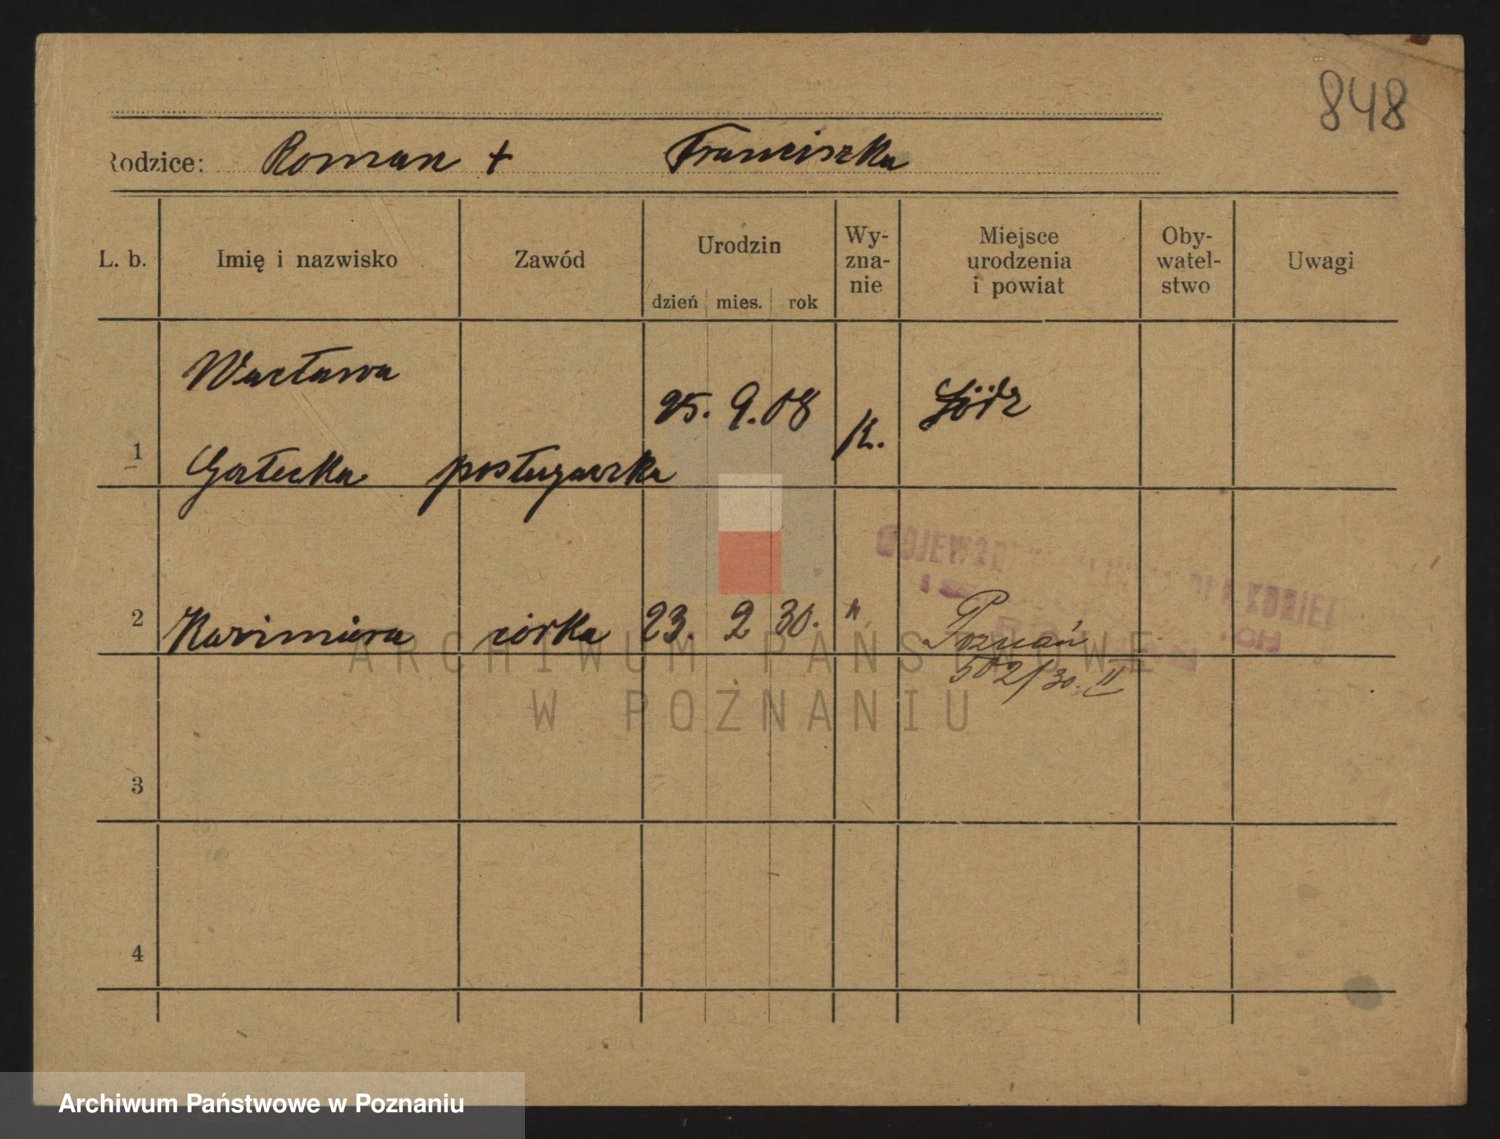 848
Rodzice: Roman + Franciszka
L. b. Imię i nazwisko Zawód Urodzin dzień mies. rok Wy-zna-nie Miejsce urodzenia i powiat Oby-watel-stwo Uwagi
Wacława
25. 9. 08 K. Łódź
1 Gołecka posługaczka
2 Kazimiera córka 23. 2 30. " Poznań
502/30. II
3
4
ARCHIWUM PAŃSTWOWE
W POZNANIU
Archiwum Państwowe w Poznaniu